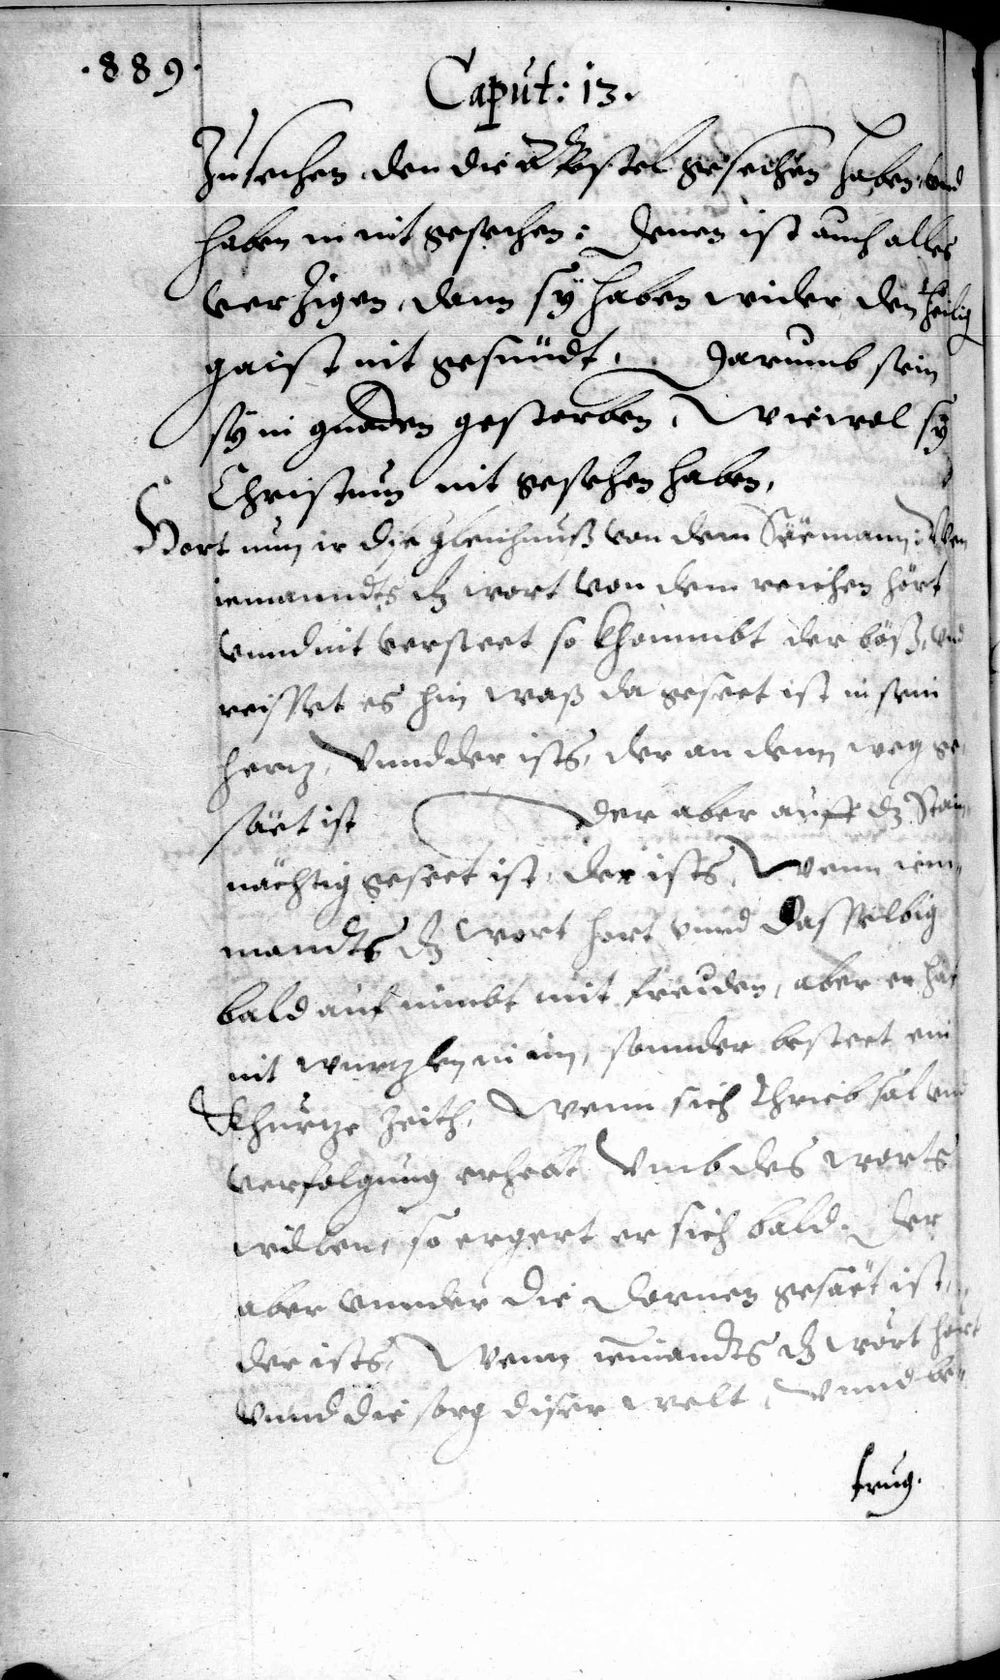 .889.
Caput: 13.
Zu sechen den die Apostel gesechen haben, vnd
haben in nit gesechen: Denen ist auch alles
verzigen, dann sÿ haben wider den heilig
gaist nit gesündt. Darumb sein
sÿ in gnaden gestorben, Wiewol sÿ
Christum nit gesechen haben,
Hort nun ir dise gleichnuß von dem Seëmann: Wen
iemanndts dz wort von dem reichen hört
vnnd nit versteet so khommbt der böß, vnd
reisset es hin waß da geseet ist in sein
hercz, Vnnd der ists, der an dem weg ge
säet ist der aber auff dz Stai
nächtig geseet ist, der ists, Wenn iem-
mandts dz wort hort vnnd dasselbig
bald auf nimbt mit freuden, aber er hat
nit wurczlen in im, sonnder besteet ein
Khurcze Zeith, Wenn sich thriebsal vnd
verfolgung erhebt Vmb des worts
willen, so ergert er sich bald. Der
aber vnnder die dornen gesäet ist,
der ists, Wenn iemandts dz wort hört
Vnnd die sorg diser welt, Vnnd be-
trug.